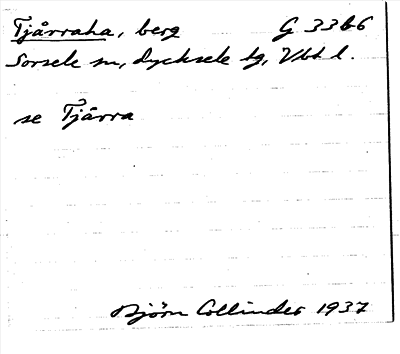 Tjårraha, berg G 33b6
Sorsele sn, Lycksele tg, Vbt l.
se Tjårra
Björn Collinder 1937